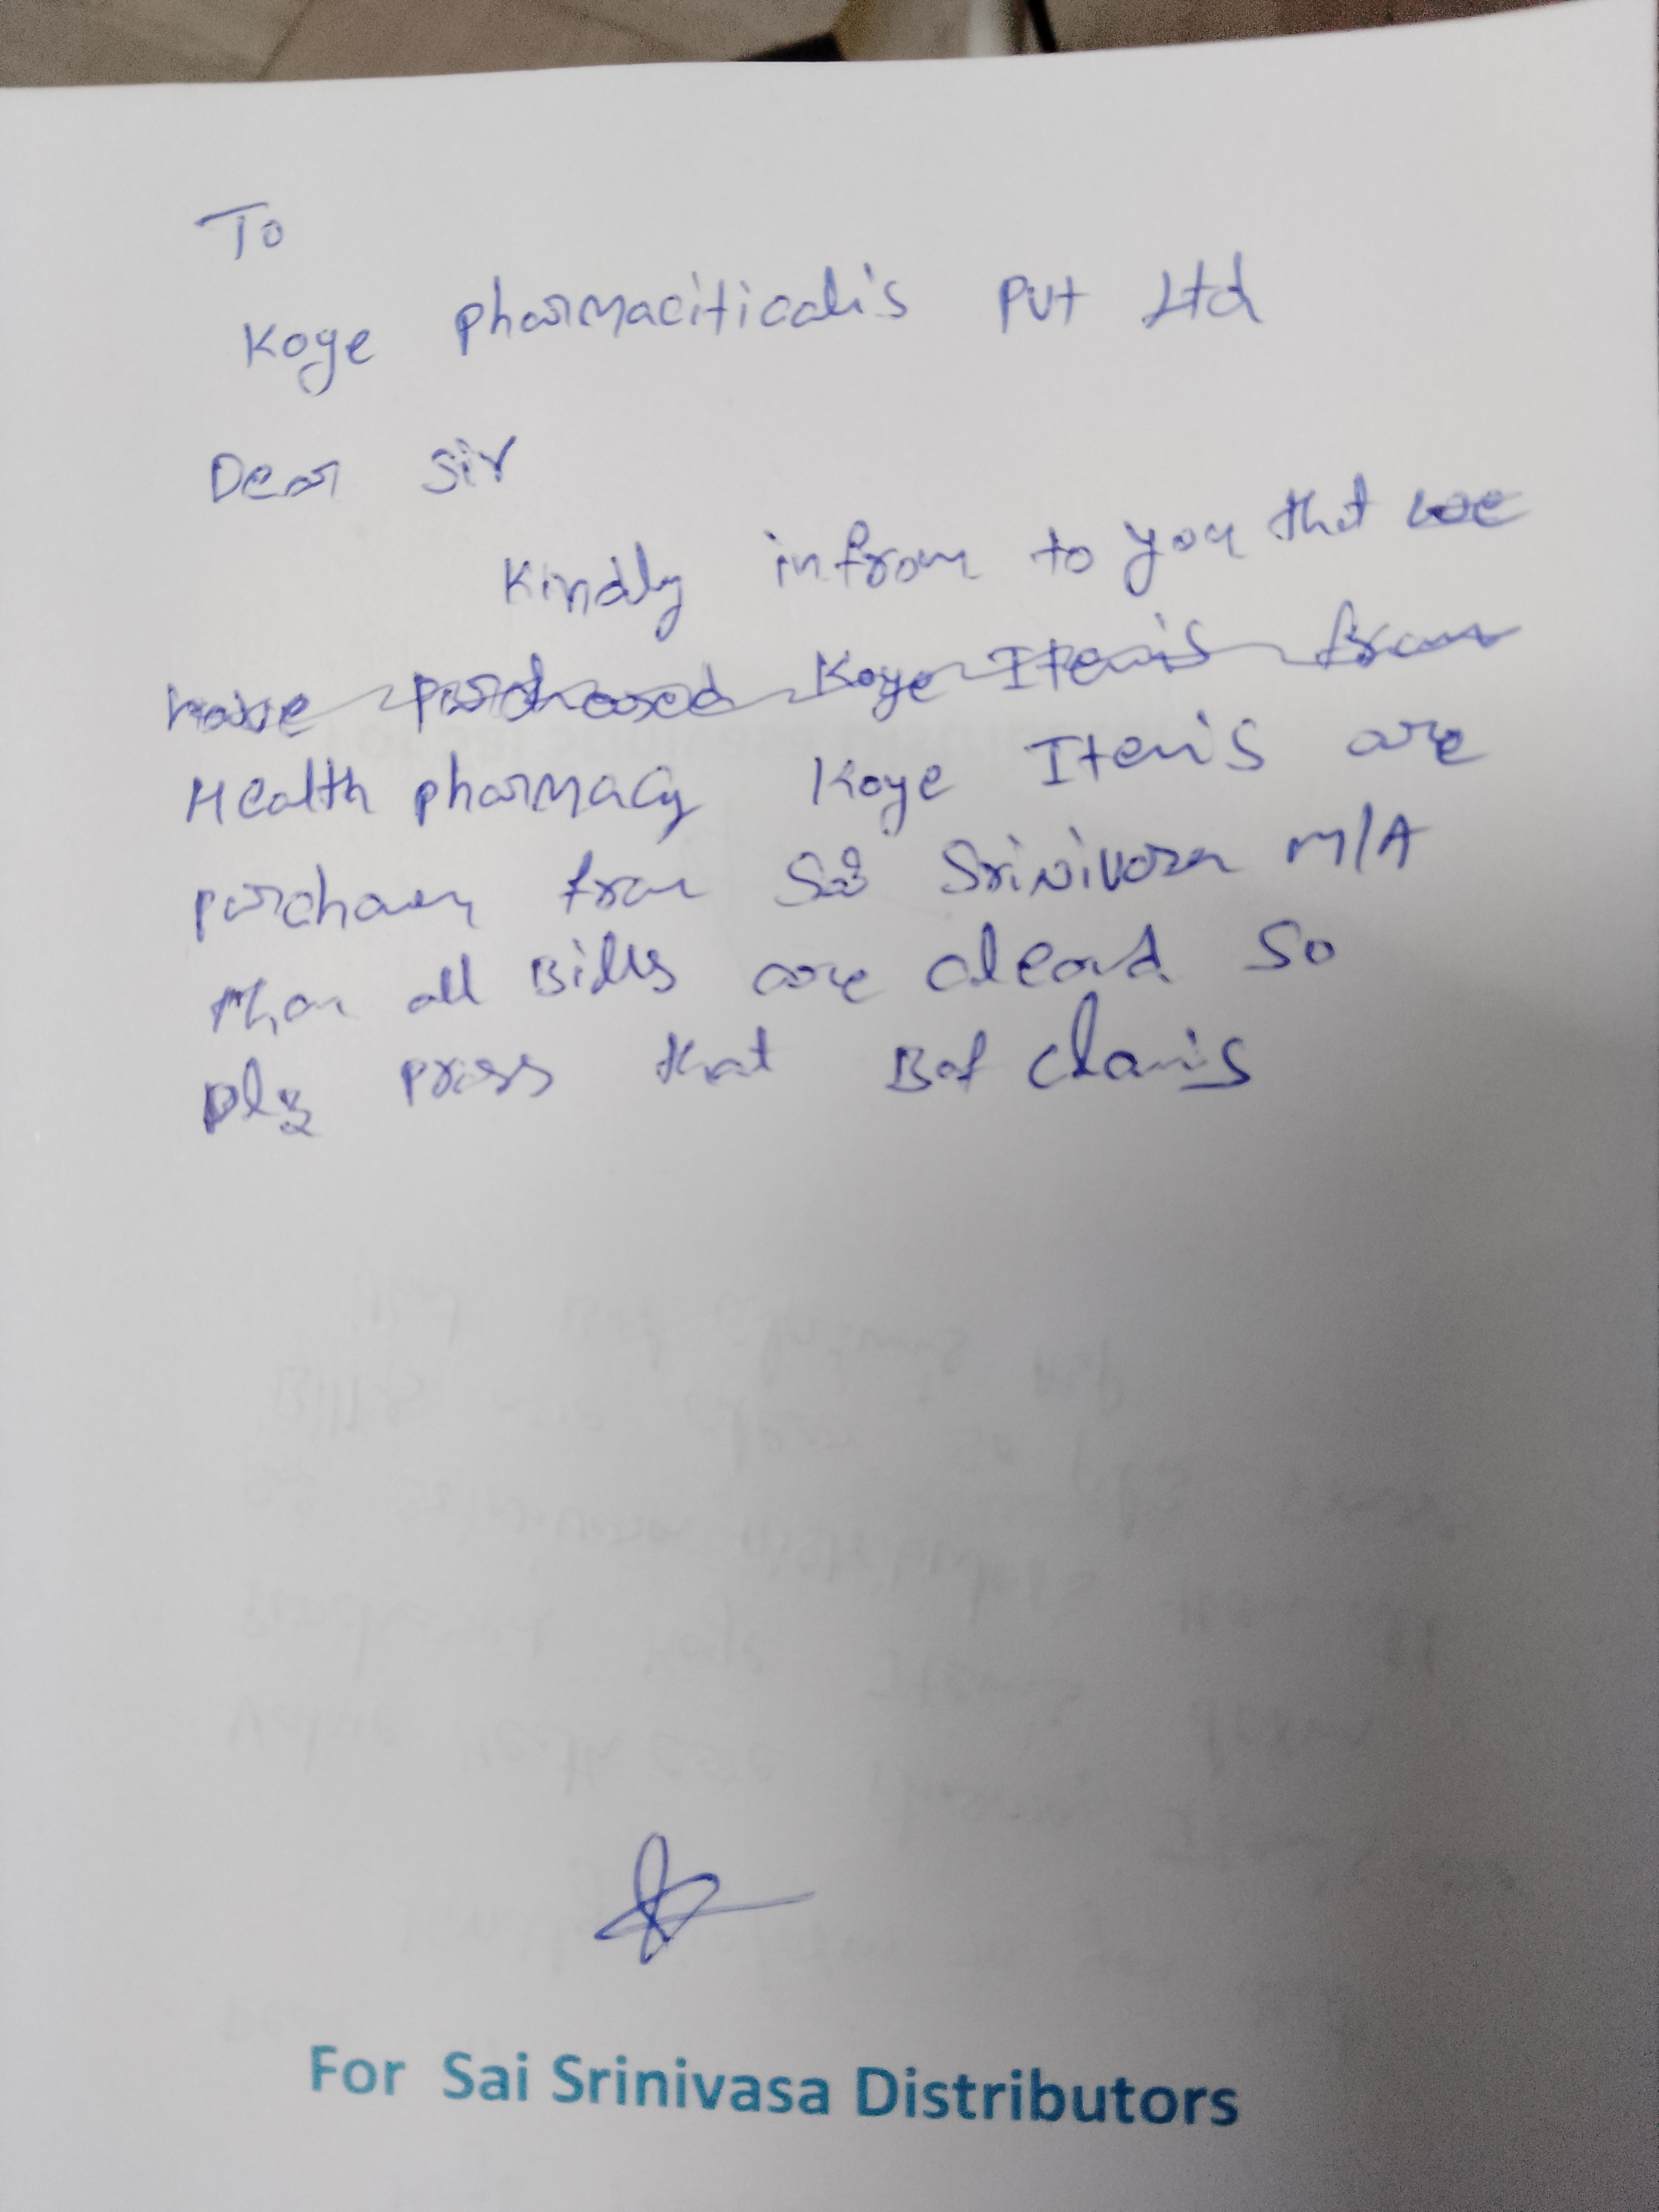 To
Koye pharmaciticalis Pvt Ltd
Dear Sir
Kindly infrom to you that we
have purchased Koye Items from
Health pharmacy Koye Items are
from Sai Srinivasa M/A
all Bills are cleard So
plz that Bof
For Sai Srinivasa Distributors